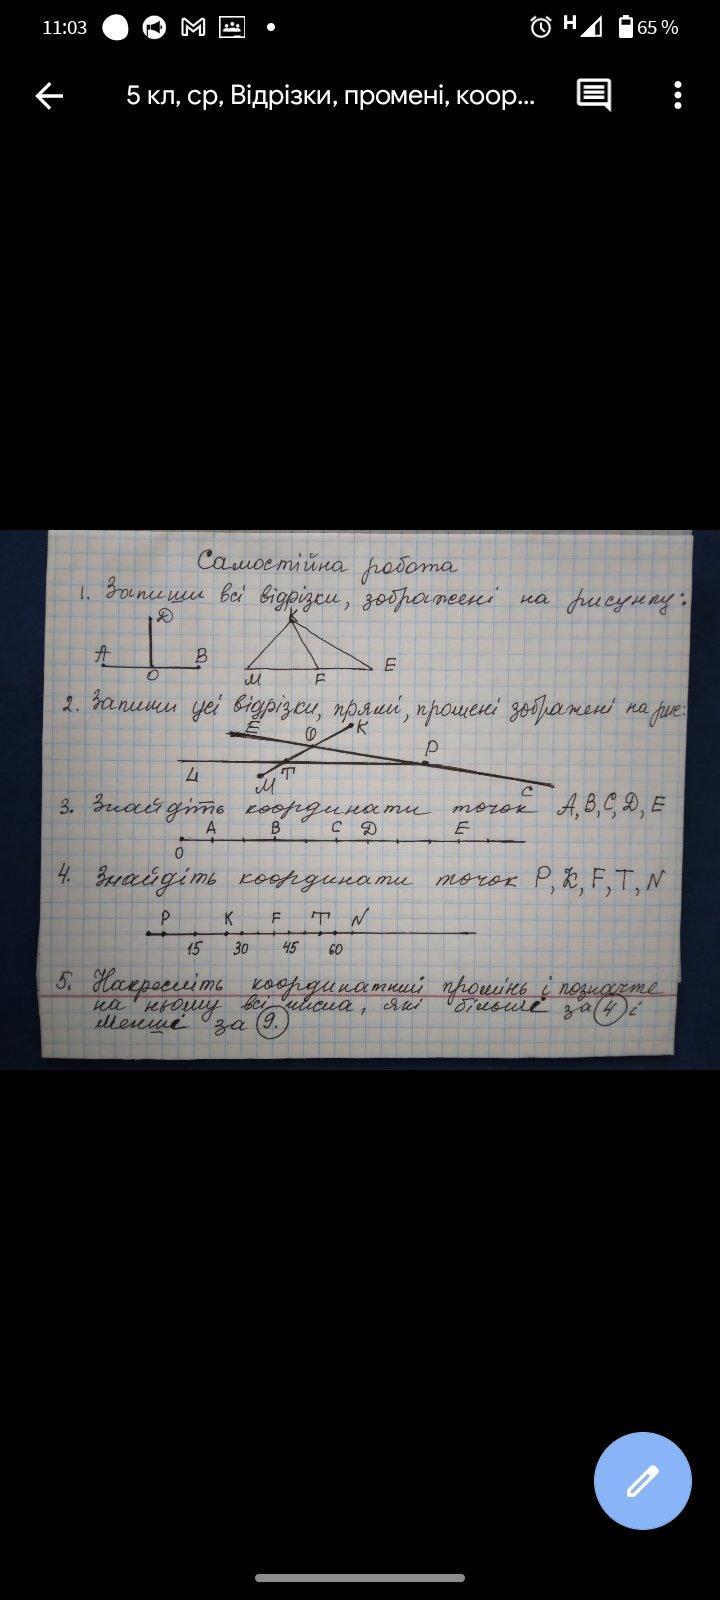 11:03
H
65 %
5 кл, ср, Відрізки, промені, коор...
Самостійна робота
1. Запиши всі відрізки, зображені на рисунку:
D
A
B
O
K
M
F
E
2. Запиши усі відрізки, прямі, промені зображені на рис:
E
O
K
P
L
M
T
C
3. Знайдіть координати точок A, B, C, D, E
A B C D E
O
4. Знайдіть координати точок P, K, F, T, N
P K F T N
15 30 45 60
5. Накресліть координатний промінь і позначте
на ньому всі числа, які більші за 4 і
менші за 9.